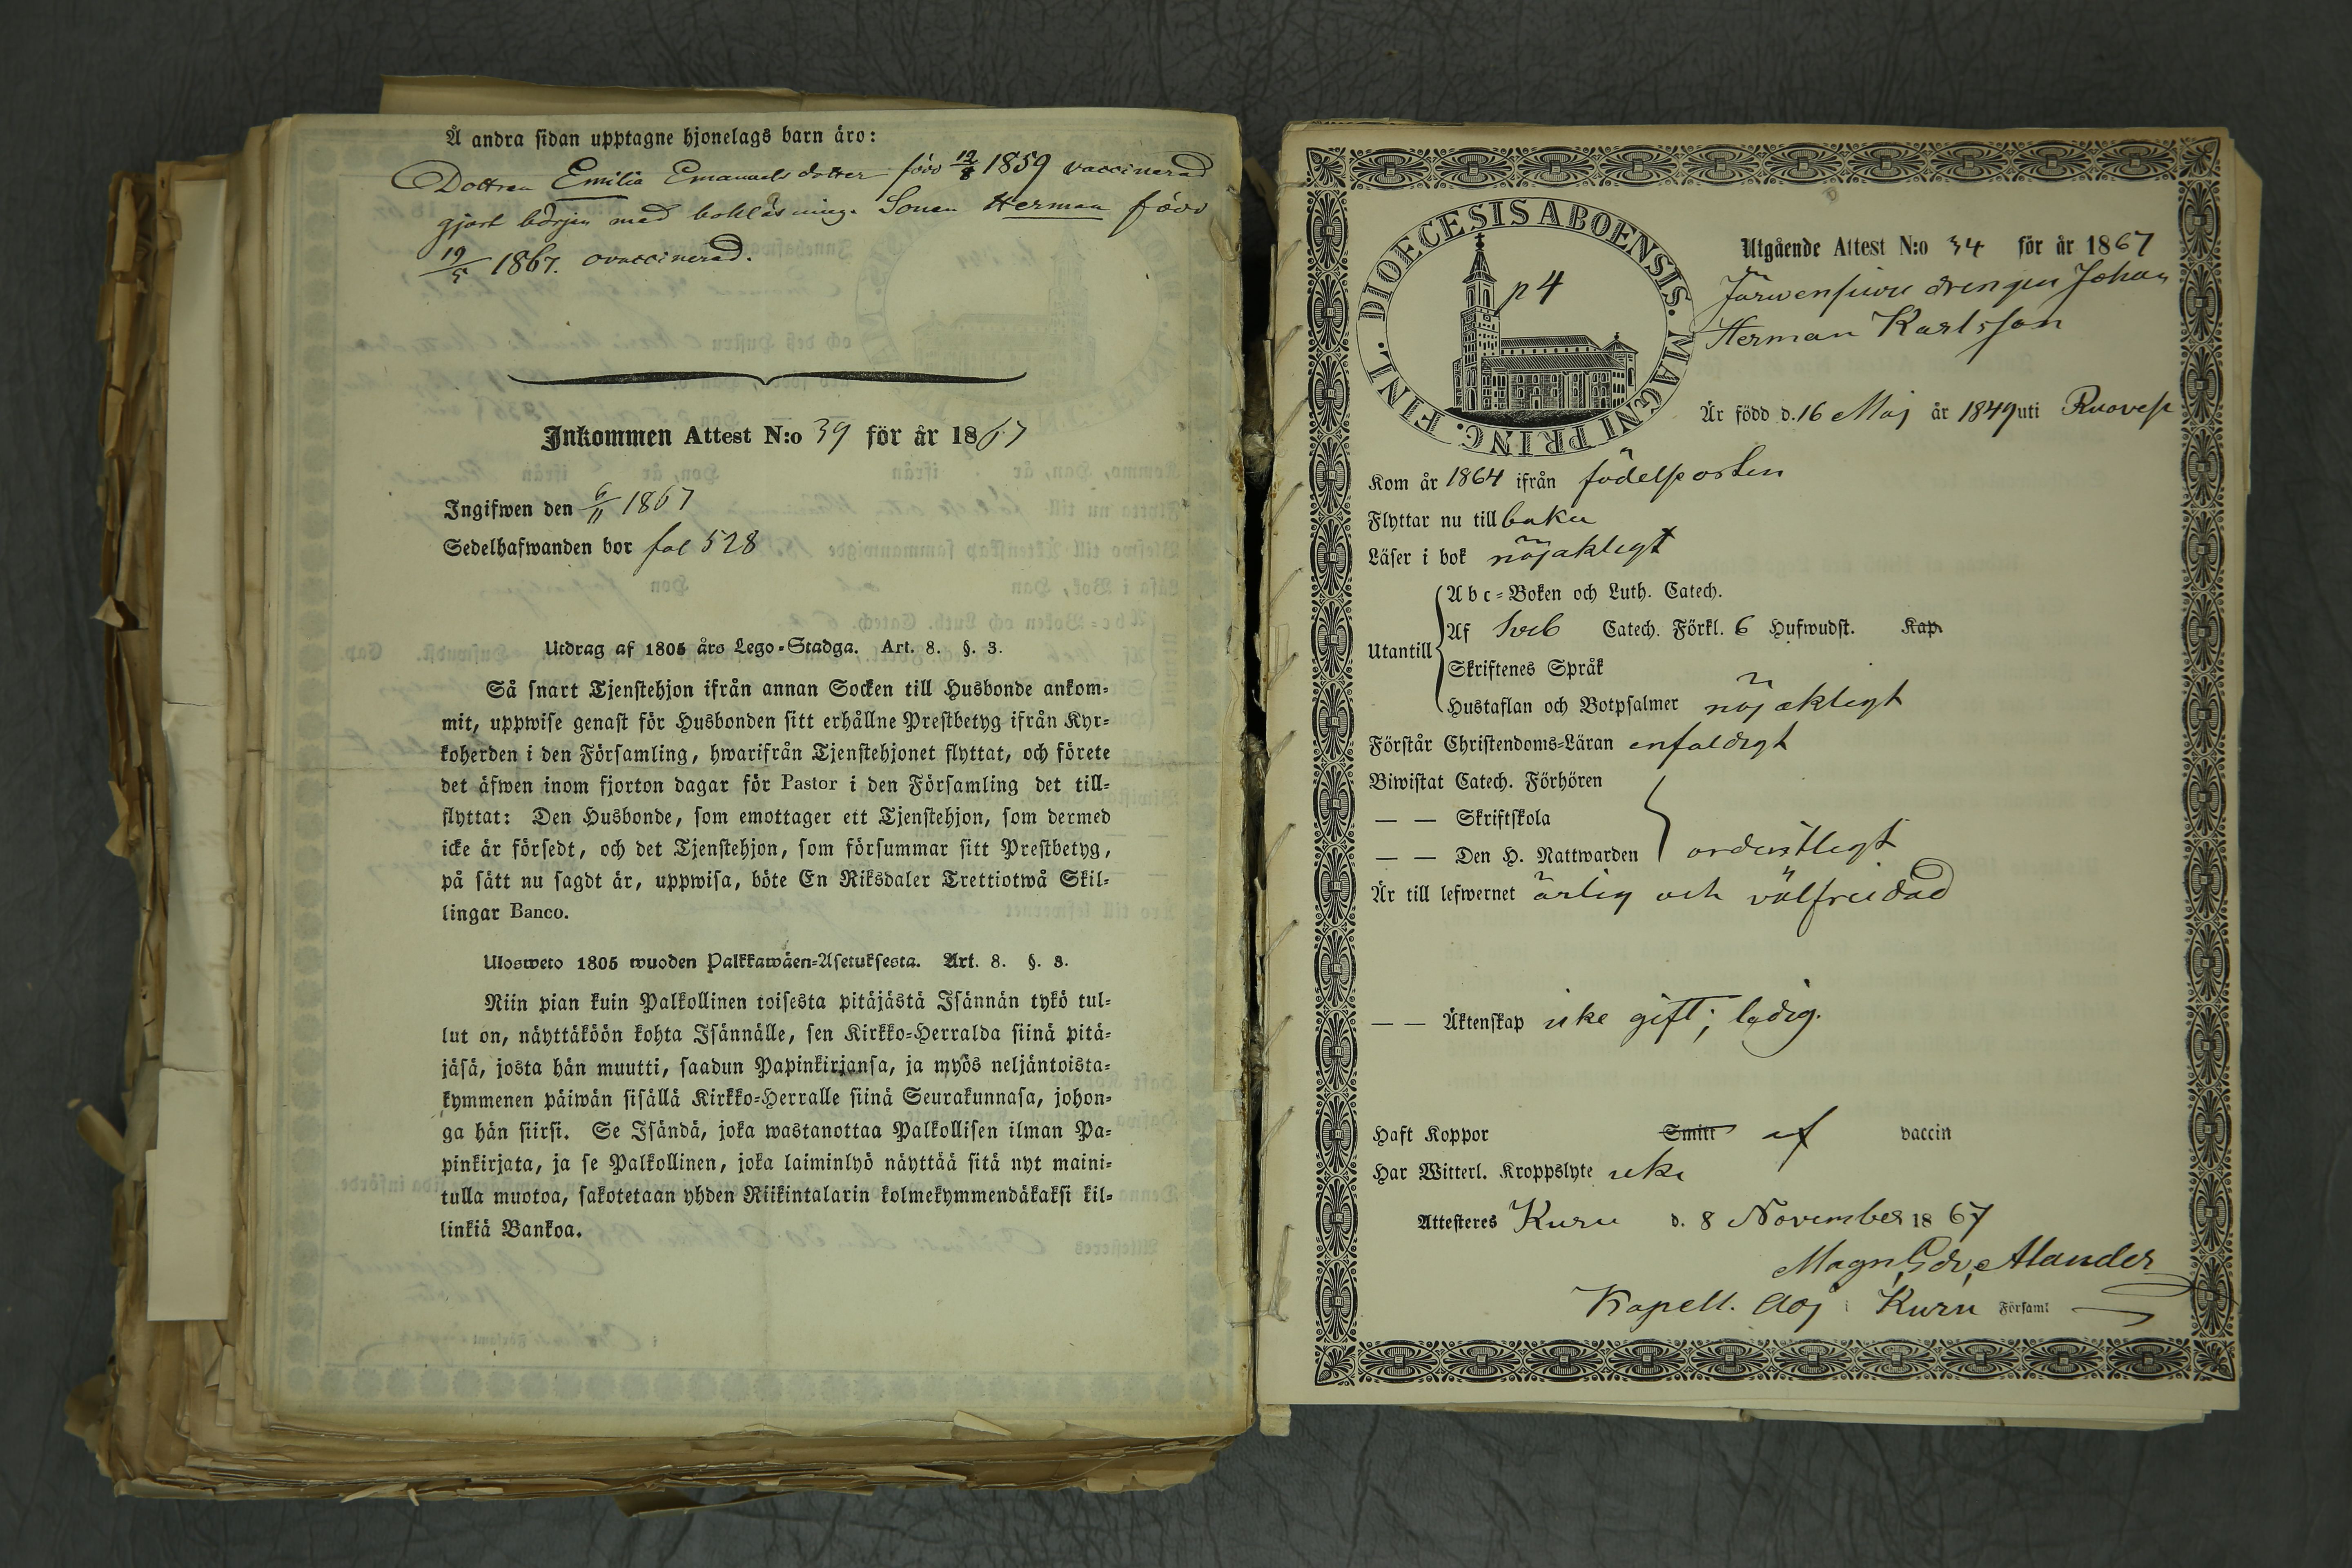 Å andra sidan upptagne hjonelags barn äro:
Dottren Emilia Emanuelsdotter född 12/8 1859 vaccinerad
gjort början med bokläsning. Sonen Herman född
19/5 1867. ovaccinerad.
Inkommen Attest N:o 39 för år 1867
Ingifwen den 6/11 1867
Sedelhafwanden bor fol 528
Utdrag af 1805 års Lego-Stadga. Art. 8. §. 3.
Så snart Tjenstehjon ifrån annan Socken till Husbonde ankom-
mit, uppwise genast för Husbonden sitt erhållne Prestbetyg ifrån Kyr-
koherden i den Församling, hwarifrån Tjenstehjonet flyttat, och förete
det äfwen inom fjorton dagar för Pastor i den Församling det till-
flyttat: Den Husbonde, som emottager ett Tjenstehjon, som dermed
icke är försedt, och det Tjenstehjon, som försummar sitt Prestbetyg,
på sätt nu sagdt är, uppwisa, böte En Riksdaler Trettiotwå Skil-
lingar Banco.
Ulosweto 1805 wuoden Palkkawäen-Asetuksesta. Art. 8. §. 3.
Niin pian kuin Palkollinen toisesta pitäjästä Isännän tykö tul-
lut on, näyttäköön kohta Isännälle, sen Kirkko-Herralda siinä pitä-
jäsä, josta hän muutti, saadun Papinkirjansa, ja myös neljäntoista-
kymmenen päiwän sisällä Kirkko-Herralle siinä Seurakunnasa, johon-
ga hän siirsi. Se Isändä, joka wastanottaa Palkollisen ilman Pa-
pinkirjata, ja se Palkollinen, joka laiminlyö näyttää sitä nyt maini-
tulla muotoa, sakotetaan yhden Riikintalarin kolmekymmendäkaksi kil-
linkiä Bankoa.
DIOECESIS ABOENSIS. MAGNI PRINC. FINL.
p 4
Utgående Attest N:o 34 för år 1867
Järwensiwu drengen Johan
Herman Karlsson
Är född d. 16 Maj år 1849 uti Ruovesi
Kom år 1864 ifrån födelseorten
Flyttar nu till baka
Läser i bok nöjaktigt
Utantill
Abc-Boken och Luth. Catech.
Af Sveb Catech. Förkl. 6 Hufwudst. Kap.
Skriftenes Språk
Hustaflan och Botpsalmer nöjaktigt
Förstår Christendoms-Läran enfaldigt
Biwistat Catech. Förhören
— — Skriftskola
— — Den H. Nattwarden ordentligt
Är till lefwernet ärlig och välfrejdad
— — Äktenskap icke gift; ledig.
Haft Koppor Smitt af vaccin
Har Witterl. Kroppslyte icke
Attesteres Kuru d. 8 November 1867
Magn. Edv. Alander
Kapell. Adj i Kuru Församl